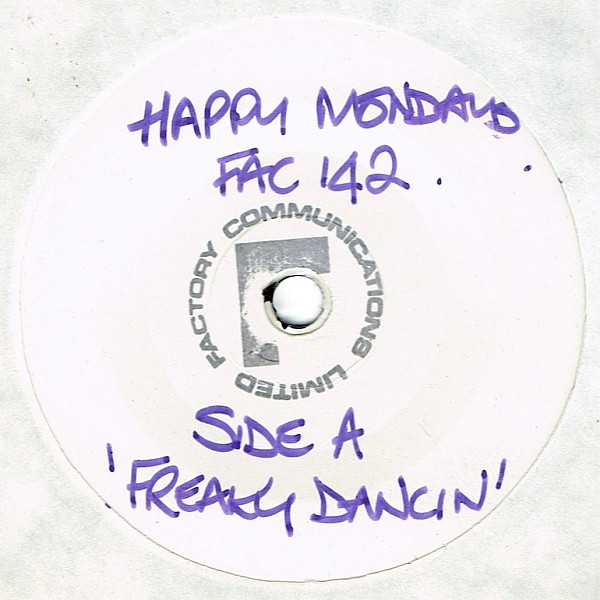 HAPPY MONDAYS
FAC 142.
FACTORY COMMUNICATIONS LIMITED
SIDE A
'FREAKY DANCIN'